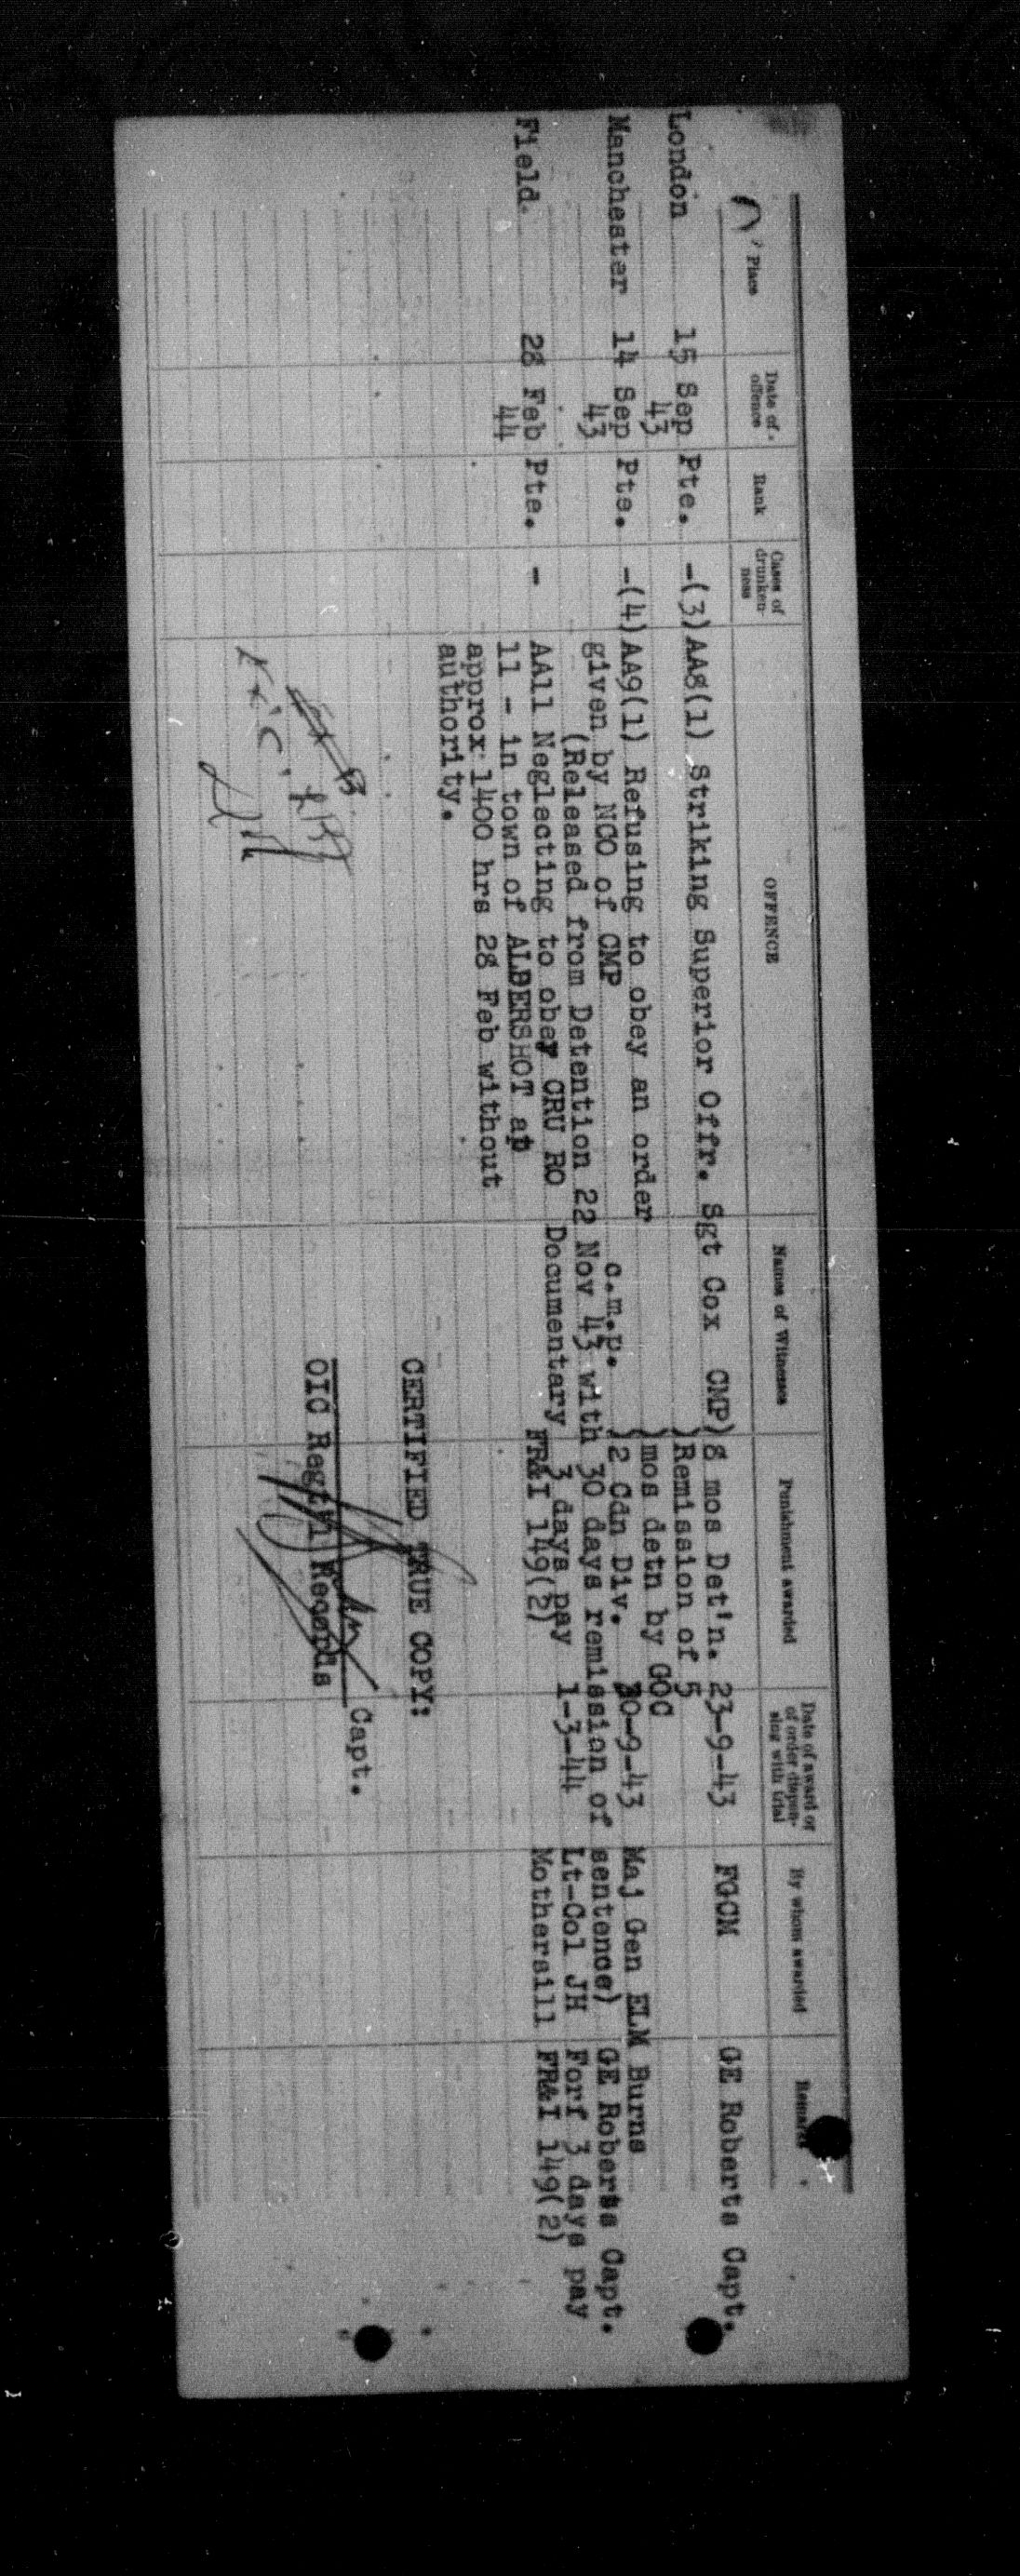 Place Date of offence Rank Cases of drunkenness OFFENCE Names of Witnesses Punishment awarded Date of award or of order dispensing with trial By whom awarded Remarks
London 15 Sep 43 Pte. -(3) AA8(1) Striking Superior Offr. Sgt Cox CMP) 8 mos Det'n. 23-9-43 FGCM GE Roberts Capt.
)Remission of 5
Manchester 14 Sep 43 Pte. -(4) AA9(1) Refusing to obey an order )mos detn by GOC
given by NCO of CMP c.m.p. )2 Cdn Div. 30-9-43 Maj Gen ELM Burns
(Released from Detention 22 Nov 43 with 30 days remission of sentence) GE Roberts Capt.
Field. 28 Feb 44 Pte. - AA11 Neglecting to obey CRU RO Documentary 3 days pay 1-3-44 Lt-Col JH Forf 3 days pay
11 - in town of ALDERSHOT at FR&I 149(2) Mothersill FR&I 149(2)
approx 1400 hrs 28 Feb without
authority.
CERTIFIED TRUE COPY:
Capt.
OIC Regt'l Records